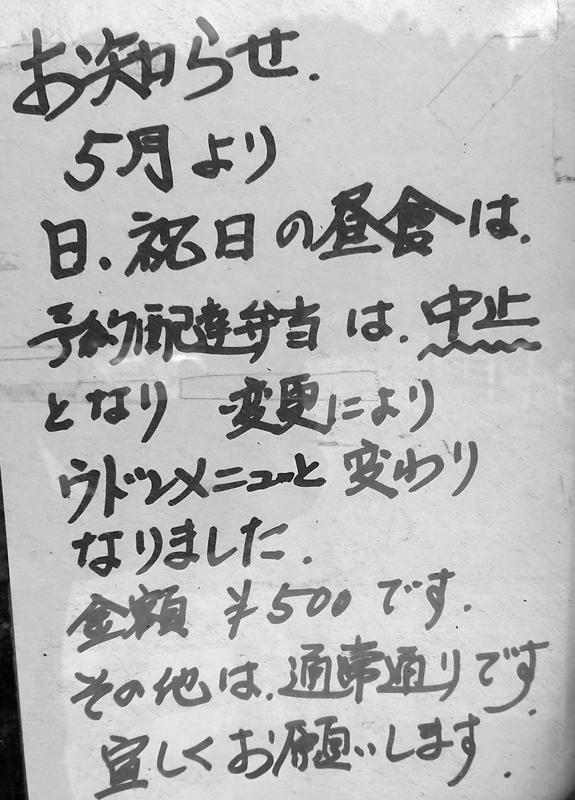 お知らせ.
5月より
日.祝日の昼食は.
予約配達弁当は.中止
となり 変更により
ウドンメニューと変わり
なりました.
金額 ¥500です.
その他は.通常通りです.
宜しくお願いします.